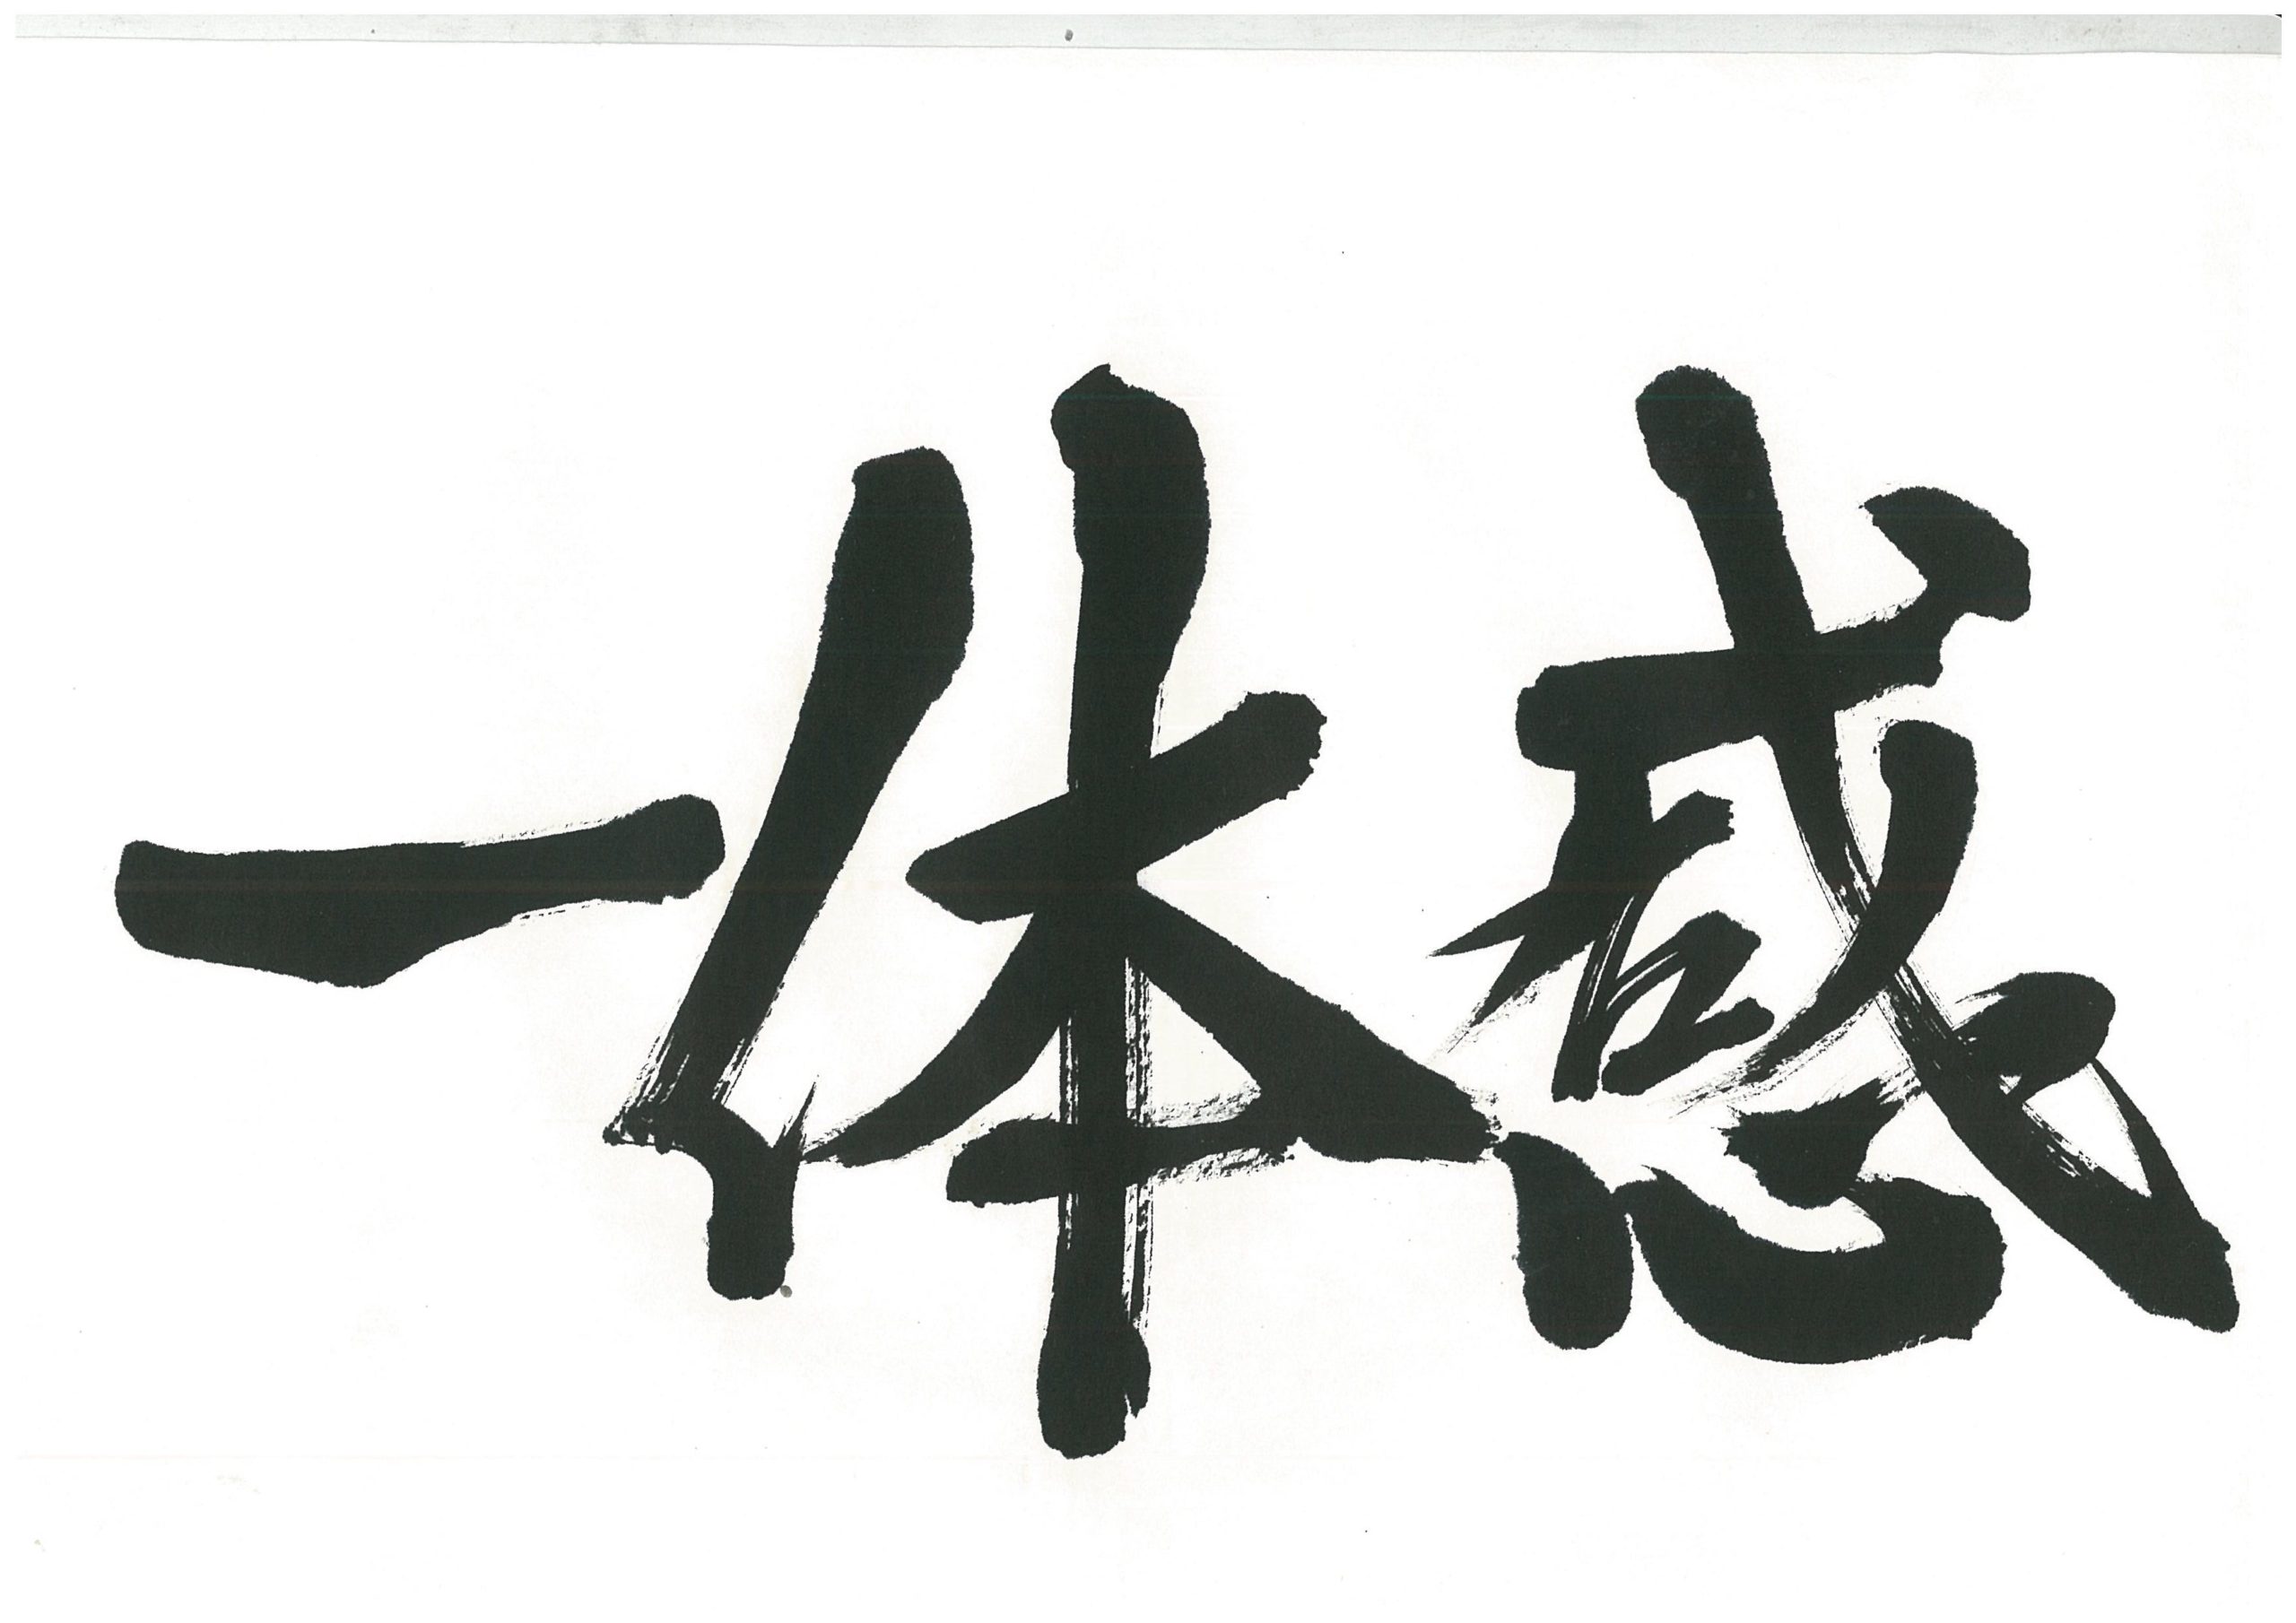 一体感